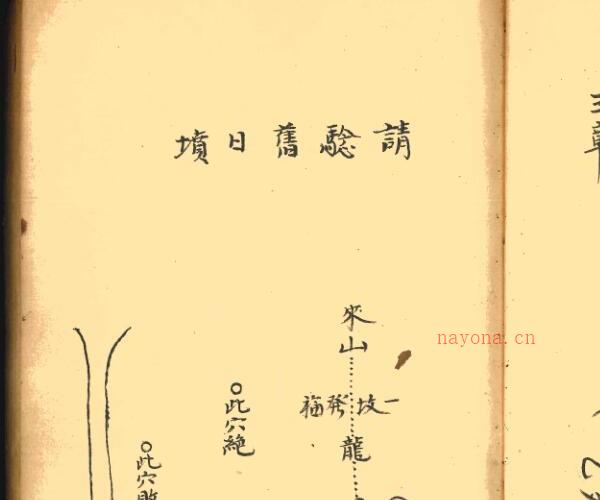 請騐舊日墳
來山
龍
一坟發福
此穴絕
此穴敗
nayona.cn